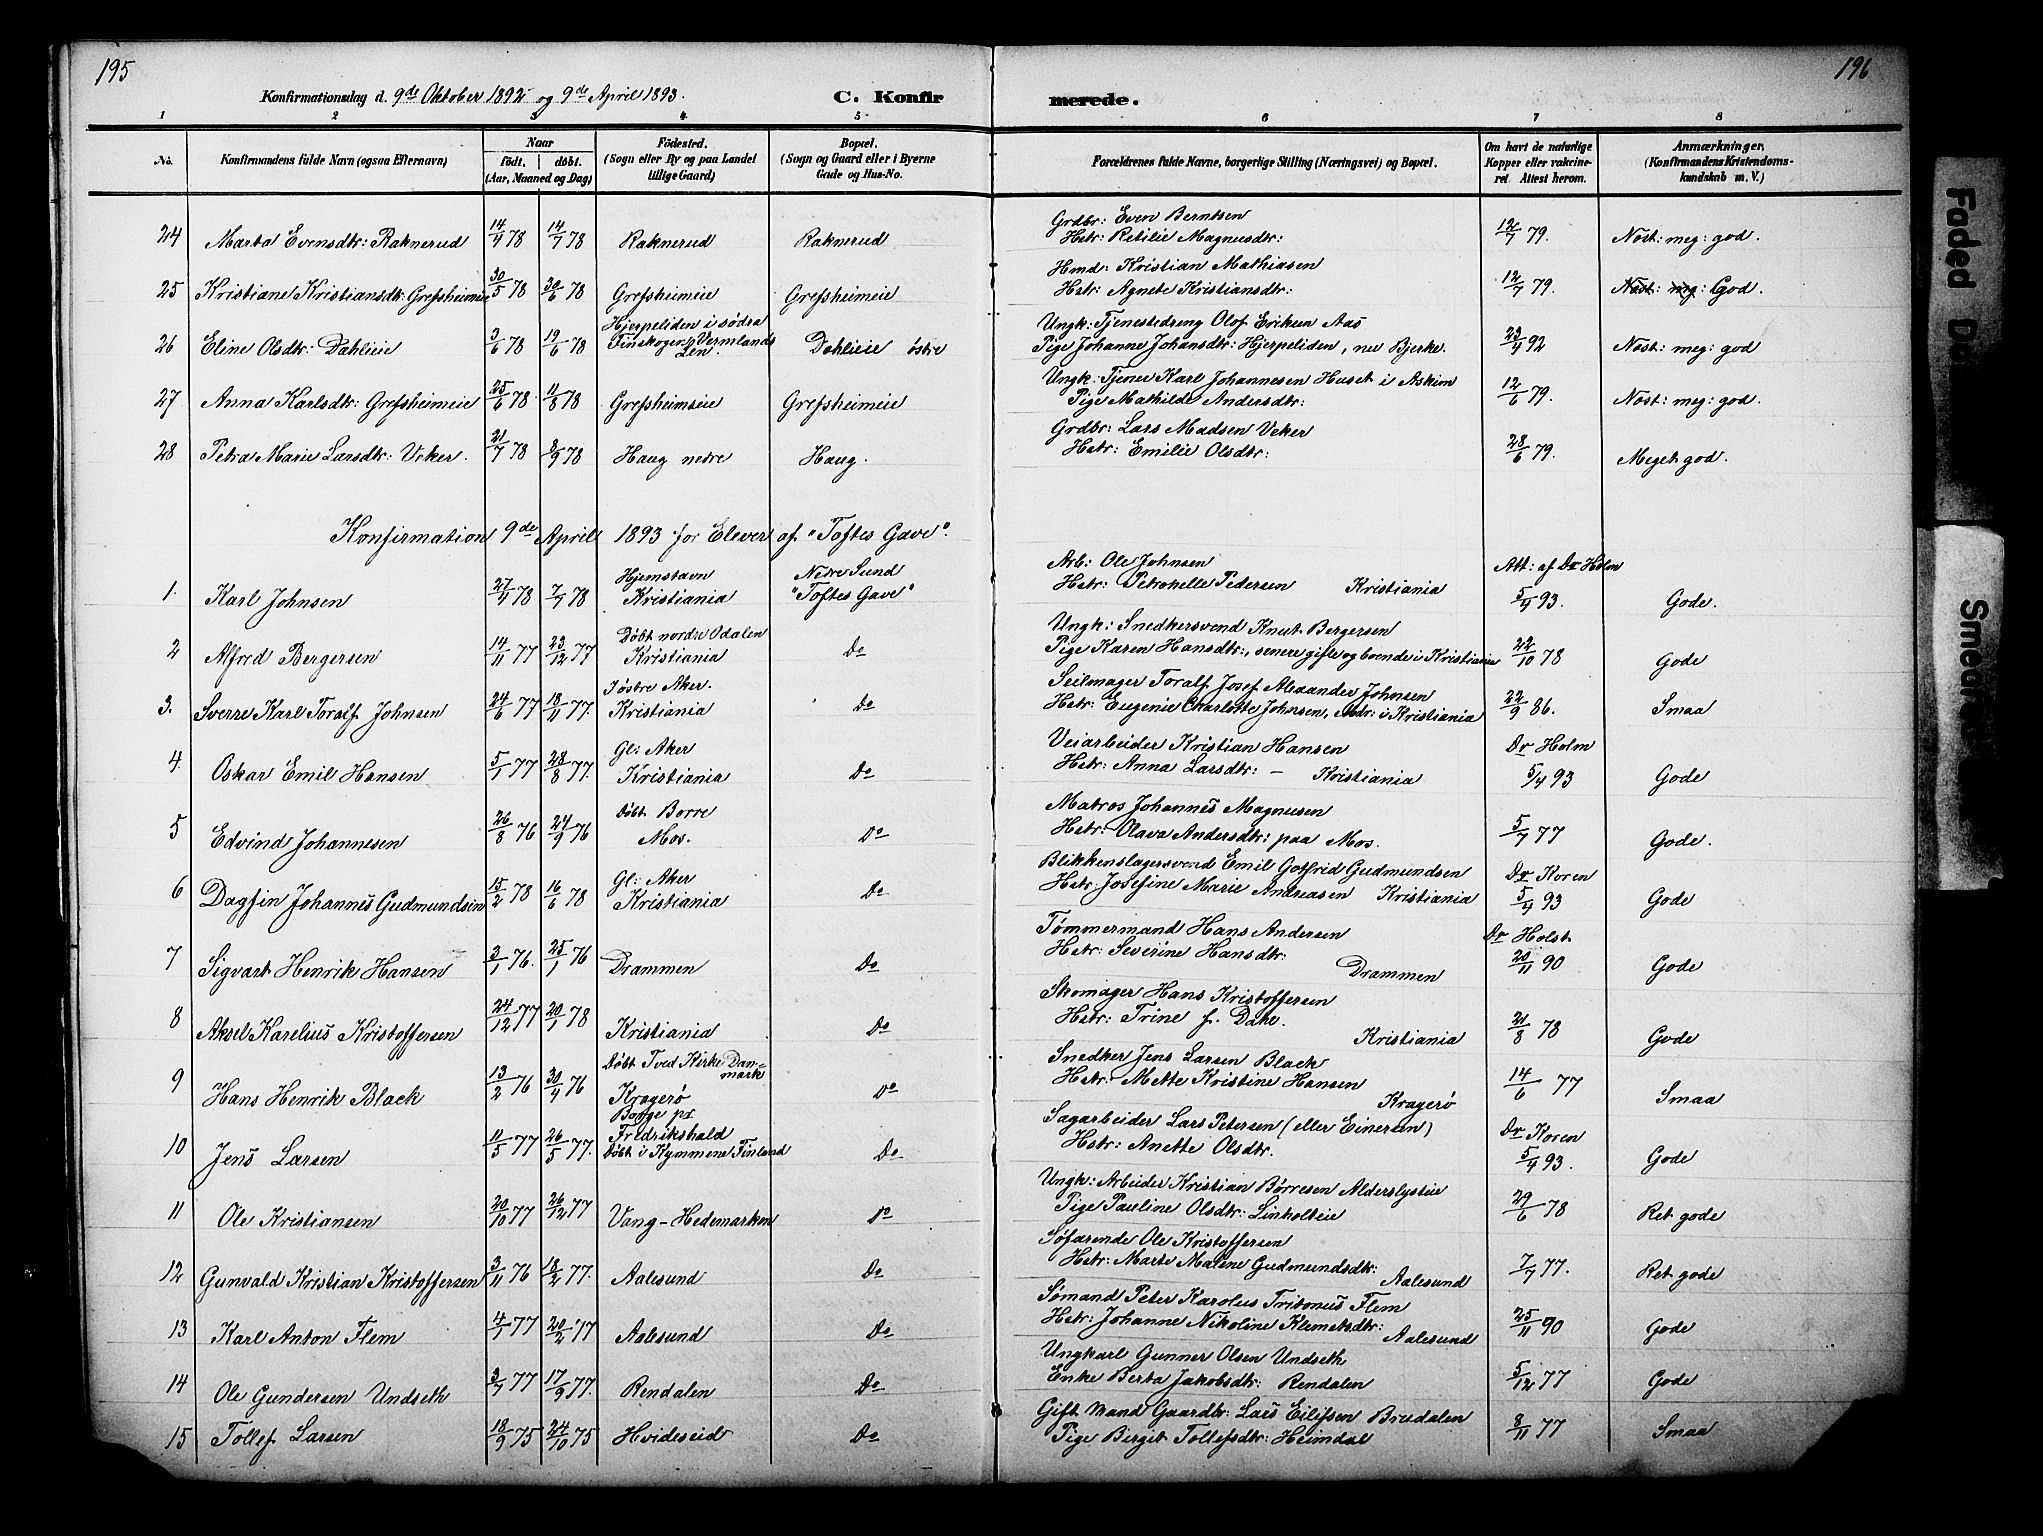 195
196
Konfirmationsdag d. 9de Oktober 1892 og 9de April 1893.
C. Konfirmerede.
1 2 3 4 5 6 7 8
No. Konfirmandens fulde Navn (ogsaa Efternavn) Naar født, døbt. (Aar, Maaned og Dag) Födested. (Sogn eller By og paa Landet tillige Gaard) Bopæl. (Sogn og Gaard eller i Byerne Gade og Hus-No. Forældrenes fulde Navne, borgerlige Stilling (Næringsvei) og Bopæl. Om havt de naturlige Kopper eller vakcineret. Attest herom. Anmærkninger, (Konfirmandens Kristendomskundskab m. V.)
24 Marta Evensdtr: Raknerud 14/4 78 14/7 78 Raknerud Raknerud Grdbr: Even Berntsen
Hstr: Retilie Magnusdtr: 12/7 79. Næst: meg: god.
25 Kristiane Kristiansdtr: Grefsheimeie 30/5 78 30/6 78 Grefsheimeie Grefsheimeie Hmd: Kristian Mathiasen
Hstr: Agnete Kristiansdtr: 12/7 79. Næst: meg: God.
26 Eline Olsdtr: Dahlieie 3/6 78 19/6 78 Hjerpeliden i södra Finskogen, Vermlands Len. Dahlieie østre Ungk: Tjenestedreng Olof Eriksen Aas
Pige Johanne Johansdtr: Hjerpeliden, nu Bjerke. 23/4 92 Næst: meg: god
27 Anna Karlsdtr: Grefsheimeie 25/6 78 11/8 78 Grefsheimseie Grefsheimeie Ungk: Tjener Karl Johannesen Huset i Askim
Pige Mathilde Andersdtr: 12/6 79. Næst: meg: god.
28 Petra Marie Larsdtr: Veker. 21/7 78 8/9 78 Haug nedre Haug. Grdbr: Lars Madsen Veker
Hstr: Emilie Olsdtr: 28/6 79. Meget god.
Konfirmation 9de April 1893 for Elever af "Toftes Gave".
1. Karl Johnsen 27/4 78 7/7 78 Hjemstavn Kristiania Nedre Sund "Toftes Gave" Arb: Ole Johnsen
Hstr: Petronelle Pedersen Kristiania Att: af Dr Holm 5/4 93. Gode.
2 Alfred Bergersen 14/11 77 23/12 77 Døbt nordre Odalen Kristiania Do Ungk: Snedkersvend Knut Bergersen
Pige Karen Hansdtr:, senere gifte og boende i Kristiania 22/10 78 Gode
3. Sverre Karl Toralf Johnsen 24/6 77 18/11 77. I østre Aker. Kristiania Do Seilmager Toralf Josef Alexander Johnsen
Hstr: Eugenie Charlotte Johnsen, i Kristiania 22/9 86. Smaa
4 Oskar Emil Hansen 5/1 77 28/8 77. Gl: Aker Kristiania Do Veiarbeider Kristian Hansen
Hstr: Anna Larsdtr: – Kristiania Dr Holm 5/4 93 Gode
5 Edvind Johannesen 26/8 76 24/9 76 Døbt Borre Mos. Do Matros Johannes Magnusen
Hstr: Olava Andersdtr: paa Mos. 5/7 77 Gode.
6 Dagfin Johannes Gudmundsen 15/2 78 16/6 78 Gl: Aker Kristiania Do Blikkenslagersvend Emil Gotfrid Gudmundsen
Hstr Josefine Marie Andreasen Kristiania Dr Koren 5/4 93 Gode
7 Sigvart Henrik Hansen 3/1 76. 25/1 76 Drammen Do Tømmermand Hans Andersen
Hstr: Severine Hansdtr: Drammen Dr Holst 20/11 90 Gode
8 Aksel Karelius Kristoffersen 24/12 77 20/1 78 Kristiania Do Skomager Hans Kristoffersen
Hstr: Trine f. Dahl. Kristiania 21/8 78 Gode
9 Hans Henrik Black 13/2 76 30/4 76 Døbt Tved Kirke Danmark Kragerø Do Snedker Jens Larsen Black
Hstr: Mette Kristine Hansen Kragerø 14/6 77 Smaa
10 Jens Larsen 11/5 77 26/5 77. Borge pr Fredrikshald Døbt i Kymmene Finland Do Sagarbeider Lars Petersen (eller Einersen)
Hstr: Anette Olsdtr. Dr Koren 5/4 93. Gode
11 Ole Kristiansen 20/10 77 26/12 77 Vang-Hedemarken Do Ungk: Arbeider Kristian Børresen Alderslysteie
Pige Pauline Olsdtr: Linholteie 29/6 78 Ret gode
12 Gunvald Kristian Kristoffersen 3/11 76 18/2 77. Aalesund Do Søfarende Ole Kristoffersen
Hstr: Marte Malene Gudmundsdtr: Aalesund 7/7 77. Ret gode
13 Karl Anton Flem 4/1 77 20/2 77 Aalesund Do Sømand Peter Karolus Tritonus Flem
Hstr: Johanne Nikoline Klemetsdtr: Aalesund 25/11 90 Gode
14 Ole Gundersen Undseth 3/7 77 17/9 77. Rendalen Do Ungkarl Gunner Olsen Undseth
Enke Berta Jakobsdtr: Rendalen 5/12 77 Gode
15 Tollef Larsen 18/9 75 24/10 75 Hvideseid Do Gift Mand Gaardbr: Lars Eilifsen Bredalen
Pige Birgit Tollefsdtr: Heimdal 8/11 77 Smaa
Faded